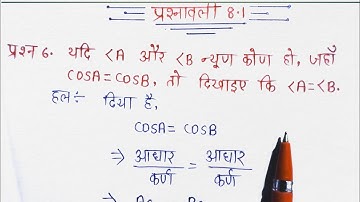 प्रश्नावली 8.1
प्रश्न 6. यदि <A और <B न्यूण कोण हो, जहाँ
COSA = COSB, तो दिखाइए कि <A=<B.
हल÷ दिया है,
COSA = COSB
⇒ आधार/कर्ण = आधार/कर्ण